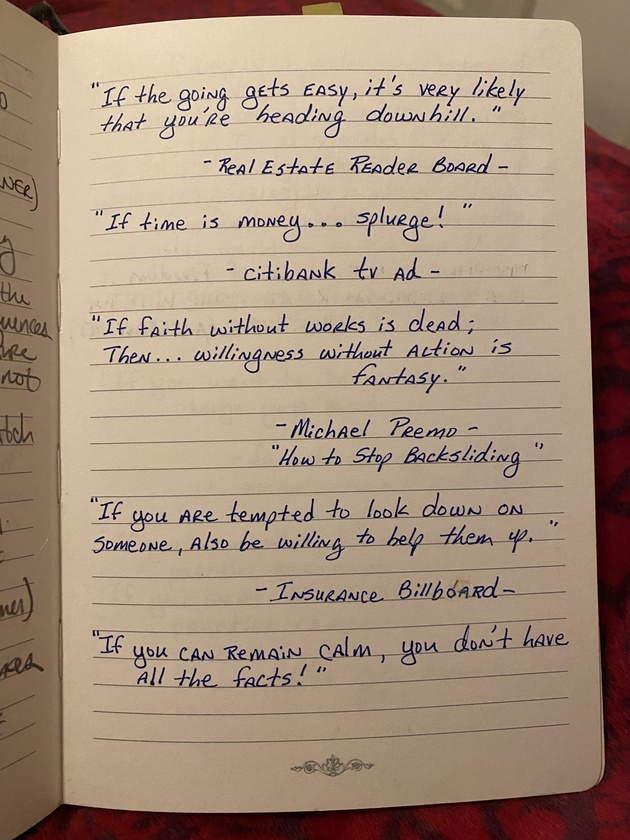 "If the going gets easy, it's very likely
that you're heading downhill."
- Real Estate Reader Board -
"If time is money... splurge!"
- Citibank tv Ad -
"If faith without works is dead;
Then... willingness without action is
fantasy."
- Michael Premo -
"How to Stop Backsliding"
"If you are tempted to look down on
someone, also be willing to help them up."
- Insurance Billboard -
"If you can remain calm, you don't have
all the facts!"
NER)
the
quences
are
not